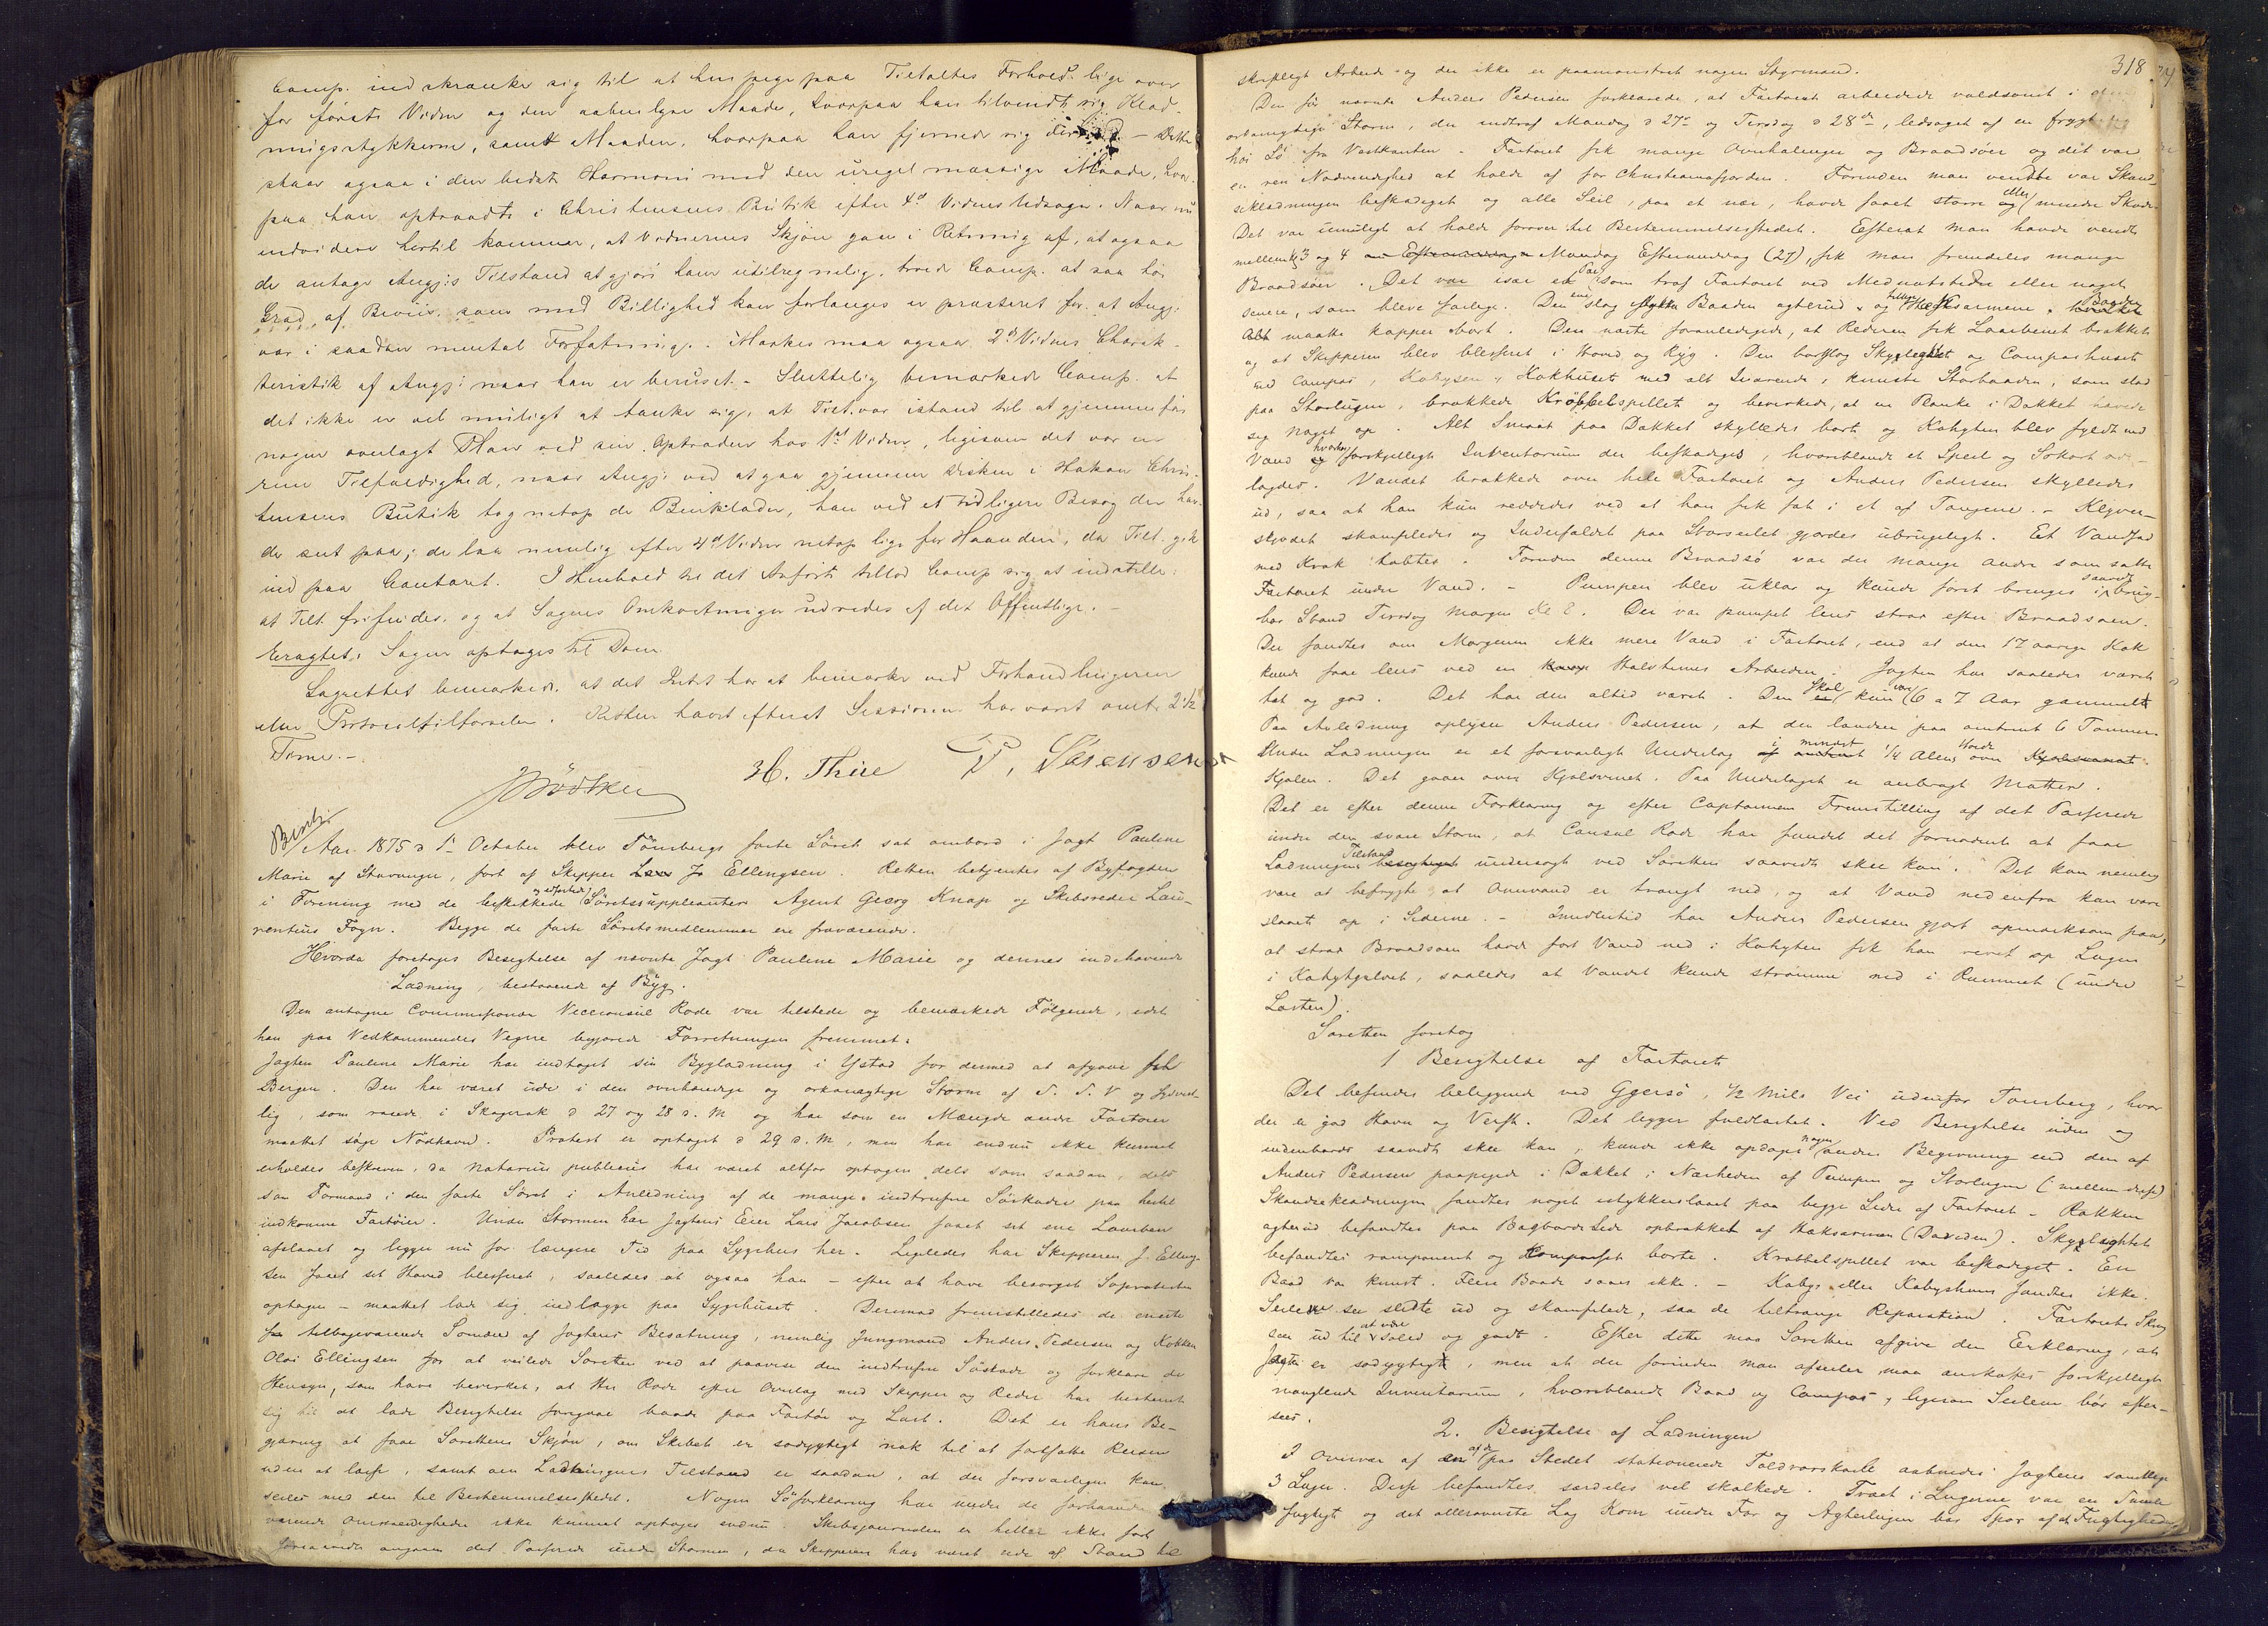 Comp. indskrænke sig til at henpege paa Tiltaltes Forhold lige over
for første Vidne og den aabenlyse Maade, hvorpaa han tilvendte sig Klæd-
ningsstykkerne, samt Maaden, hvorpaa han fjernede sig – Dette
staar ogsaa i den bedste Harmoni med den uregelmæssige Maade, hvor-
paa han optraadte i Christensens Butik efter 4de Vidnes Udsagn. Naar nu
endvidere hertil kommer, at Vidnernes Skjøn gaar i Retning af, at ogsaa
de antage Angj:s Tilstand at gjøre ham utilregnelig, troede Comp. at saa høi
Grad af Beviis, som med Billighed kan forlanges er præsteret for, at Angj:
var i saadan mental Forfatning. Mærkes maa ogsaa 2det Vidnes Charak-
teristik af Angj: naar han er beruset. – Sluttelig bemærkede Comp. at
det ikke er vel muligt at tænke sig, at Tilt. var istand til at gjennemføre
nogen overlagt Plan ved sin Optræden hos 1ste Vidne, ligesom det var en
ren Tilfældighed, naar Angj: ved at gaa gjennem Disken i Hakon Chris-
tensens Butik tog netop de Benklæder, han ved et tidligere Besøg der hav-
de seet paa; de laa nemlig efter 4de Vidne netop lige for Haanden, da Tilt. gik
ind paa Contoret. I Henhold til det Anførte tillod Comp sig at indstille:
at Tilt. frifindes, og at Sagens Omkostninger udredes af det Offentlige. –
Eragtet: Sagen optages til Dom.
Lagrettet bemærkede, at det Intet har at bemærke ved Forhandlingerne
eller Protocoltilførselen. Retten hævet efterat Sessionen har varet omtr. 2½
Time. –
JBødtker H. Thise P. Sørensen
Aar 1875 d 1ste October blev Tønsbergs faste Søret sat ombord i Jagt Pauline
Marie af Stavanger, ført af Skipper Jo Ellingsen. Retten betjentes af Byfogden
i Forening med de beskikkede og edfæstede Søretssuppleanter Agent Georg Knap og Skibsreder Lau-
rentius Føyn. Begge de faste Søretsmedlemmer ere fraværende.
Hvorda foretoges Besigtelse af nævnte Jagt Pauline Marie og dennes indehavende
Ladning, bestaaende af Byg.
Den antagne Commissionær Viceconsul Rode var tilstede og bemærkede Følgende, idet
han paa Vedkommendes Vegne begjærede Forretningen fremmet:
Jagten Pauline Marie har indtaget sin Bygladning i Ystad for dermed at afgaa til
Bergen. Den har været ude i den overhændige og orkanagtige Storm af S. S. V og Sydvest-
lig, som rasede i Skagerak d 27 og 28 d. M og har som en Mængde andre Fartøier
maattet søge Nødhavn. Protest er optaget d 29 d. M, men har endnu ikke kunnet
erholdes beskreven, da Notarius publicus har været altfor optagen dels som saadan, dels
som Formand i den faste Søret i Anledning af de mange indtrufne Søskader paa hertil
indkomne Fartøier. Under Stormen har Jagtens Eier Lars Jacobsen faaet sit ene Laarben
afslaaet og ligger nu for længere Tid paa Sygehus her. Ligeledes har Skipperen J. Elling-
sen faaet sit Hoved blesseret, saaledes at ogsaa han – efter at have besørget Søprotesten
optagen – maattet lade sig indlægge paa Sygehuset. Dermed fremstilledes de eneste
tilbageværende Sømænd af Jagtens Besætning, nemlig Jungmand Anders Pedersen og Kokken
Olai Ellingsen for at veilede Søretten ved at paavise den indtrufne Søskade og forklare de
Hensyn, som have bevirket, at Hr Rode efter Overlæg med Skipper og Reder har bestemt
sig til at lade Besigtelse foregaae baade paa Fartøi og Last. Det er hans Be-
gjæring at faae Sørettens Skjøn, om Skibet er sødygtigt nok til at fortsætte Reisen
uden at losse, samt om Ladningens Tilstand er saadan, at der forsvarligen kan
seiles med den til Bestemmelsesstedet. Nogen Søforklaring har under de forhaanden
værende Omstændigheder ikke kunnet optages endnu. Skibsjournalen er heller ikke ført
forsaavidt angaar det Passerede under Stormen, da Skipperen har været ude af Stand til
318
skriftligt Arbeide og der ikke er paamønstret nogen Styrmand.
Den før nævnte Anders Pedersen forklarede, at Fartøiet arbeidede voldsomt i den
orkanagtige Storm, der indtraf Mandag d 27de og Tirsdag d 28de, ledsaget af en frygtelig
høi Sø fra Vestkanten. Fartøiet fik mange Overhalinger og Braadsøer og det var
en ren Nødvendighed at holde af for Christianiafjorden. Forinden man vendte var Skand-
seklædningen beskadiget og alle Seil, paa et nær, havde faaet større eller mindre Skade.
Det var umuligt at holde forover til Bestemmelsesstedet. Efterat man havde vendt
mellem Kl 3 og 4 Mandag Eftermiddag (27), fik man fremdeles mange
Braadsøer. Det var især et Par som traf Fartøiet ved Mednatstider eller noget
senere, som bleve farlige. Den ene slog Baaden agterud og tillige Hæksarmene. Baaden
maatte kappes bort. Den næste foranledigede, at Rederen fik Laarbenet brækket
og at Skipperen blev blesseret i Hoved og Ryg. Den bortslog Skyglightet og Compashuset
med Compas, Kabysen, Kokhuset med alt Iværende, knuste Storbaaden, som stod
paa Storlugen, brækkede Krøbbelspillet og bevirkede, at en Planke i Dækket hævede
sig noget op. Alt Smaat paa Dækket skylledes bort og Kahyten blev fyldt med
Vand hvorhos forskjelligt Inventarium der beskadiges, hvoriblandt et Speil og Søkart øde-
lagdes. Vandet brækkede over hele Fartøiet og Anders Pedersen skylledes
ud, saa at han kun reddedes ved at han fik fat i et af Tougene. – Klyver-
skjødet skamfiledes og Underfaldet paa Storseilet gjordes ubrugeligt. Et Vandfad
med Krak tabtes. Foruden denne Braadsø var der mange andre som satte
Fartøiet under Vand. – Pumpen blev uklar og kunde først bringes i brug-
bar Stand Tirsdag Morgen Kl 8. Der var pumpet læns strax efter Braadsøen.
Der fandtes om Morgenen ikke mere Vand i Fartøiet, end at den 17 aarige Kok
kunde faae læns ved en Halvtimes Arbeiden. Jagten har saaledes været
tæt og god. Det har den altid været. Den skal kun være 6 a 7 Aar gammel.
Paa Anledning oplyser Anders Pedersen, at der landen paa omtrent 6 Tommer.
Under Ladningen er et forsvarligt Underlag i mindst ¼ Alens Høide over
Kjølen. Det gaar over Kjølsvinet. Paa Underlaget er anbragt Matter.
Det er efter denne Forklaring og efter Captainens Fremstilling af det Passerede
under den svære Storm, at Consul Rode har fundet det fornødent at faae
Ladningens Tilstand undersøgt ved Søretten saavidt skee kan. Det kan nemlig
være at befrygte at Overvand er trængt ned, og at Vand nedenfra kan være
slaaet op i Siderne. – Imidlertid har Anders Pedersen gjort opmærksom paa,
at strax Braadsøen havde ført Vand ned i Kahyten fik han revet op Lugen
i Kahytgulvet, saaledes at Vandet kunde strømme ned i Rummet (under
Lasten).
Søretten foretog
1 Besigtelse af Fartøiet
Det befindes beliggende ved Ggersø, ½ Mils Vei udenfor Tønsberg, hvor
der er god Havn og Verft. Det ligger fuldlastet. Ved Besigtelse uden og
indenbords saavidt skee kan, kunde ikke opdages nogen anden Begivning end den af
Anders Pedersen paapegede i Dækket i Nærheden af Pumpen og Storlugen (imellem disse)
Skandseklædningen fandtes noget istykkerslaaet paa begge Sider af Fartøiet – Rækken
agterud befandtes paa Bagbords Side opbrækket af Hæksarmen (Daviden). Skyglightet
befandtes ramponeret og Kompasset borte. Krøbbelspillet var beskadiget. En
Baad var knust. Flere Baade saaes ikke. – Kabys eller Kabyshuus fandtes ikke.
Seilene see slidte ud og skamfilede, saa de tiltrænge Reparation. Fartøiets Skrog
saa ud til at være solid og godt. Efter dette maa Søretten afgive den Erklæring, at
Jagten er sødygtigt, men at der forinden man afseiler maa anskaffes forskjelligt
manglende Inventarium, hvoriblandt Baad og Compas, ligesom Seilene bør efter-
sees.
2. Besigtelse af Ladningen
I Overvær af af de paa Stedet stationerede Toldvæsskarle aabnedes Jagtens samtlige
3 Luger. Disse befandtes særdeles vel skalkede. Træet i Lugerne var en Smule
fugtigt og det alleroverste Lag Korn under For og Agterlugen bar Spor af at Fugtighed